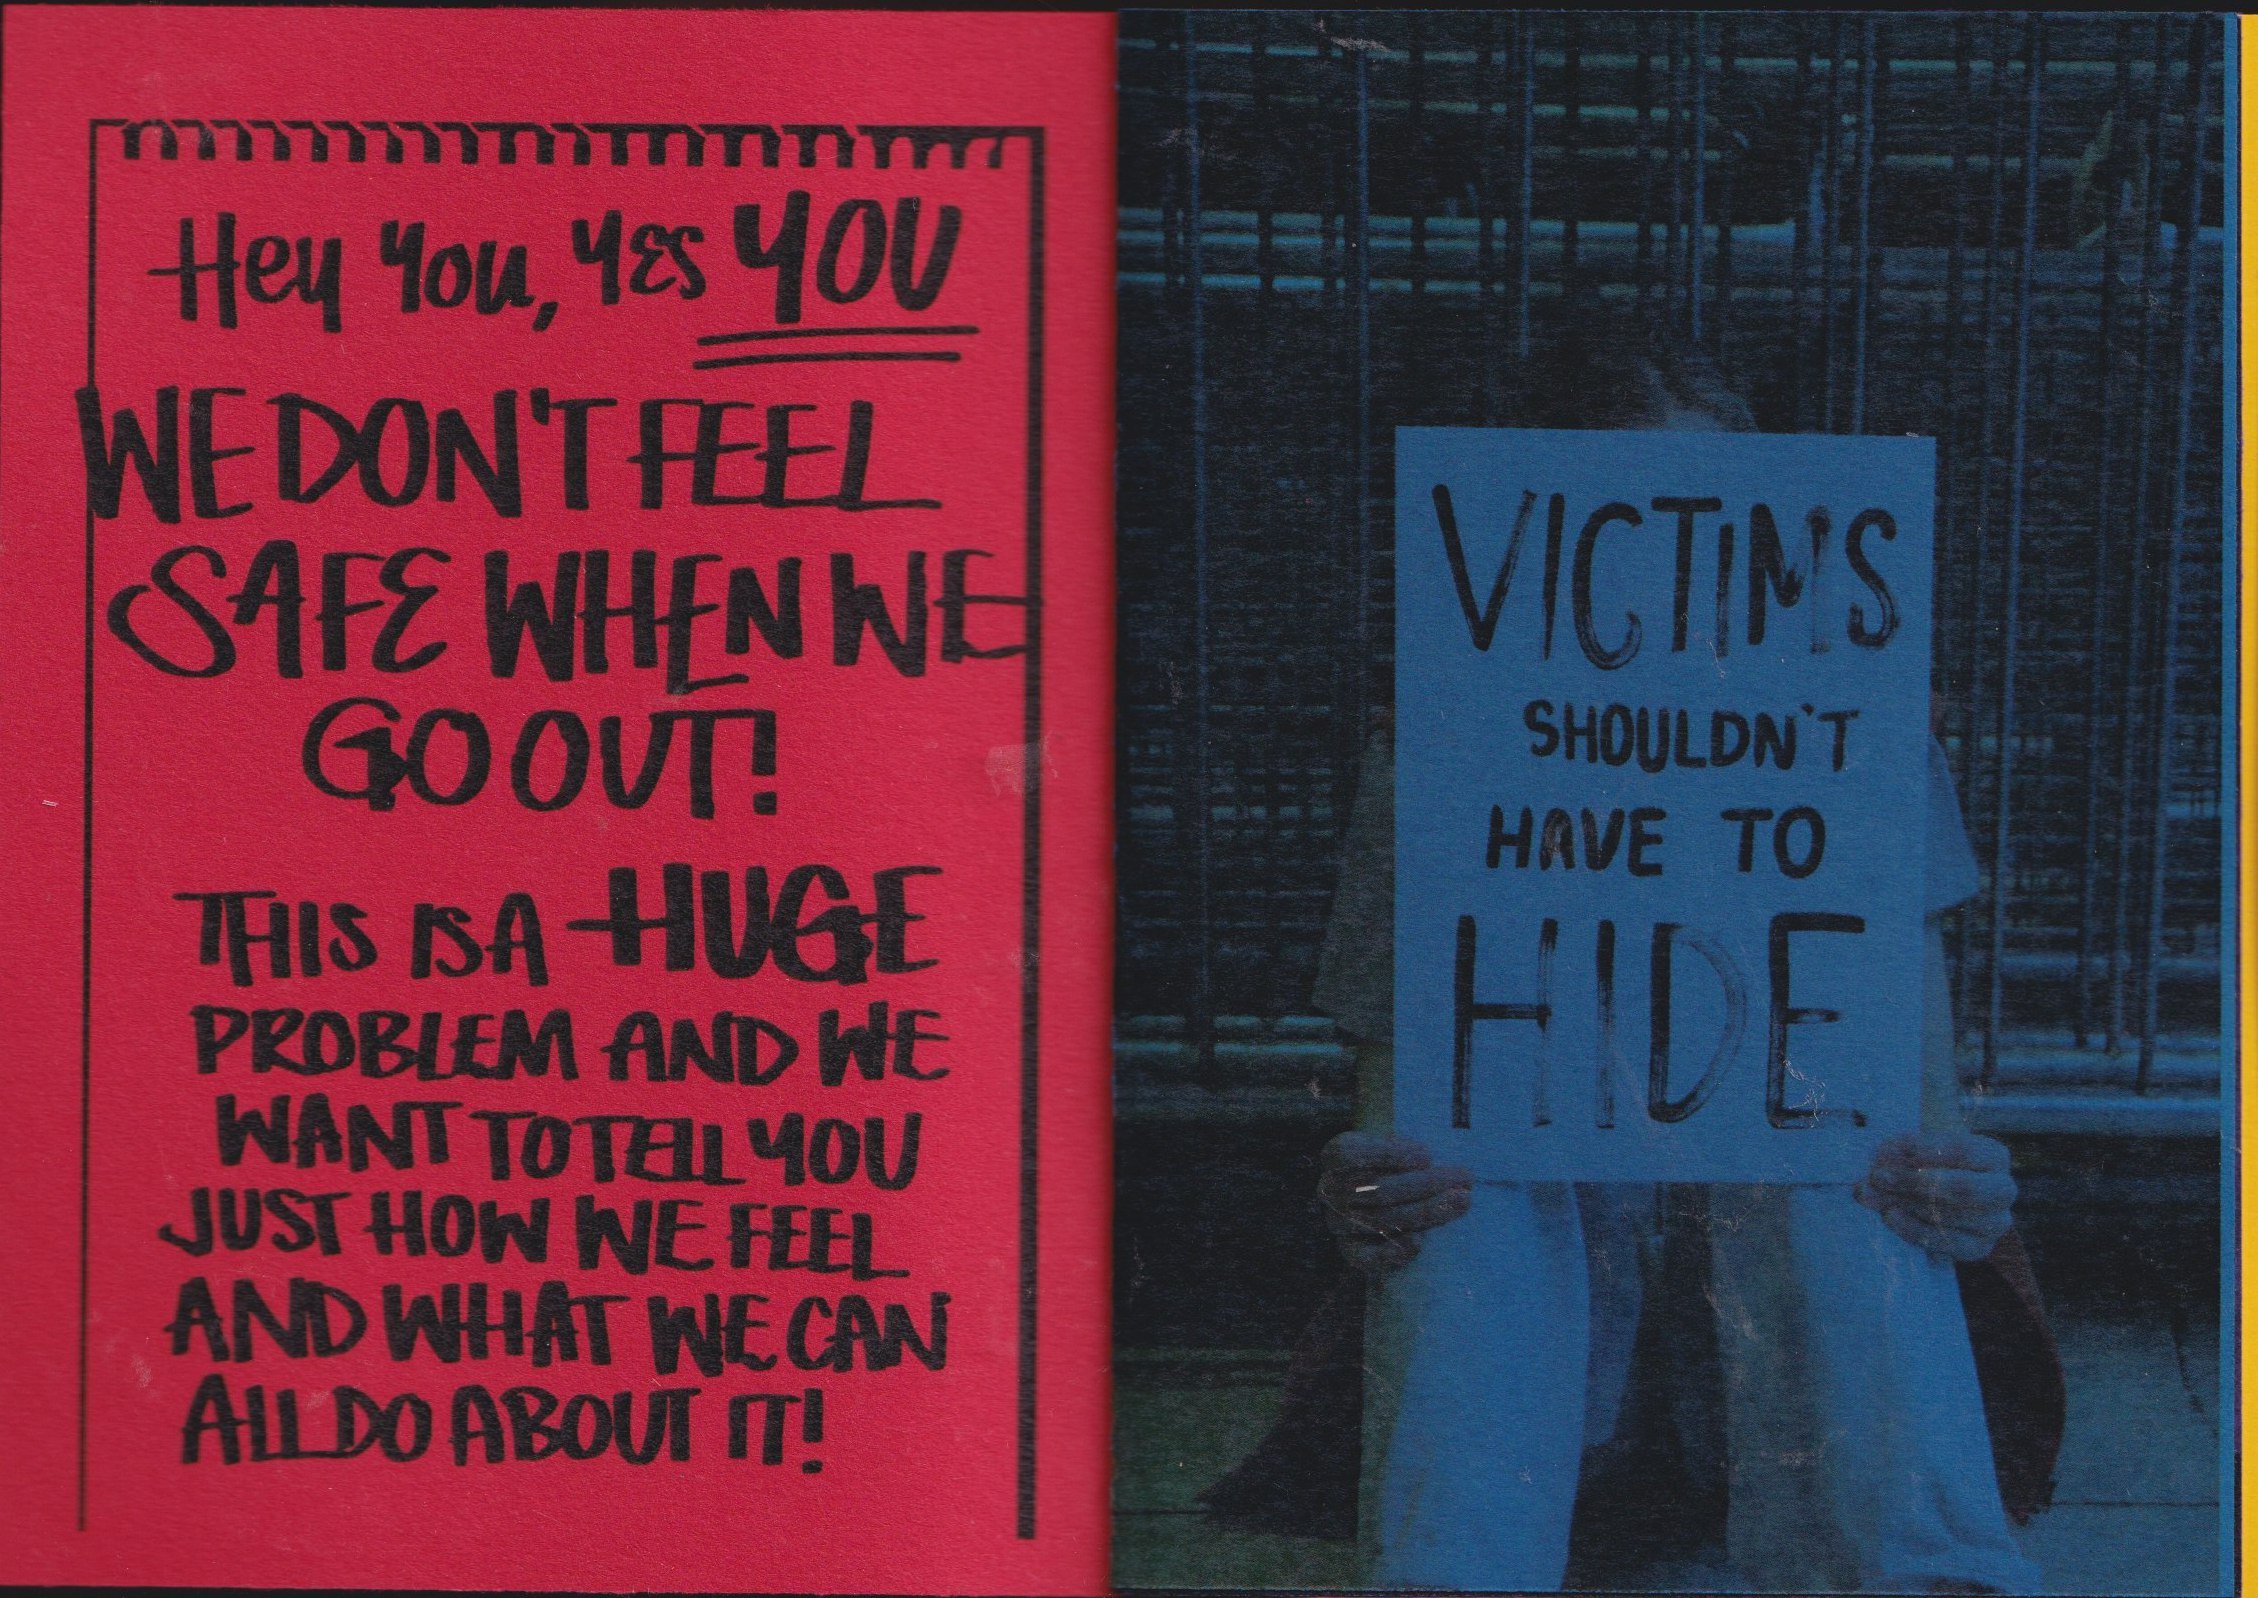 Hey You, YES YOU
WE DON'T FEEL
SAFE WHEN WE
GO OUT!
THIS IS A HUGE
PROBLEM AND WE
WANT TO TELL YOU
JUST HOW WE FEEL
AND WHAT WE CAN
ALL DO ABOUT IT!
VICTIMS
SHOULDN'T
HAVE TO
HIDE